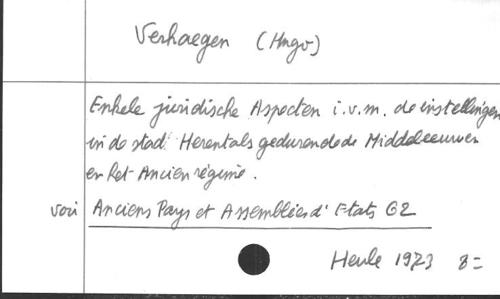 Verhaegen (Hugo)
Enkele juridische Aspecten i.v.m. de instellingen
in de stad Herentals gedurende de Middeleeuwen
en het Ancien régime.
voir Anciens Pays et Assemblées d'Etats 62
Heule 1973 8=